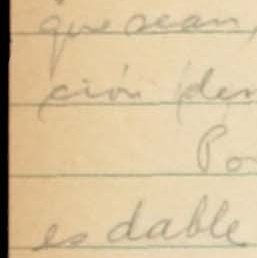 que sean,
ción den
Po
es dable